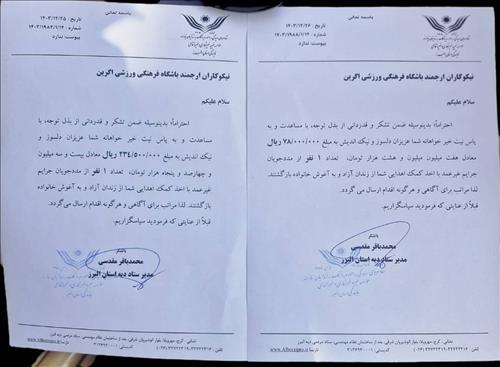 باسمه تعالی
تاریخ : ۱۴۰۳/۱۲/۲۶
شماره : ۱۴۰۳/۱۹۸۲/۱/۱۴
پیوست: ندارد
نیکوکاران ارجمند باشگاه فرهنگی ورزشی اکرین
سلام علیکم
احتراماً؛ بدینوسیله ضمن تشکر و قدردانی از بذل توجه، با
مساعدت و به پاس نیت خیر خواهانه شما عزیزان دلسوز و
نیک اندیش به مبلغ ۷۸/۰۰۰/۰۰۰ ریال
معادل هفت میلیون و هشت هزار تومان، تعداد ۱ نفر از مددجویان
جرایم غیرعمد با اخذ کمک اهدایی شما از زندان آزاد و به آغوش خانواده بازگشتند.
لذا مراتب برای آگاهی و هرگونه اقدام ارسال می گردد.
قبلاً از عنایتی که فرمودید سپاسگزاریم.
باتشکر
محمدباقر مقدسی
مدیر ستاد دیه استان البرز
باسمه تعالی
تاریخ : ۱۴۰۳/۱۲/۲۵
شماره : ۱۴۰۳/۱۹۸۲/۱/۱۴
پیوست: ندارد
نیکوکاران ارجمند باشگاه فرهنگی ورزشی اکرین
سلام علیکم
احتراماً؛ بدینوسیله ضمن تشکر و قدردانی از بذل توجه، با
مساعدت و به پاس نیت خیر خواهانه شما عزیزان دلسوز و
نیک اندیش به مبلغ ۲۳۴/۵۰۰/۰۰۰ ریال معادل بیست و سه میلیون
و چهارصد و پنجاه هزار تومان، تعداد ۱ نفر از مددجویان جرایم
غیرعمد با اخذ کمک اهدایی شما از زندان آزاد و به آغوش خانواده
بازگشتند. لذا مراتب برای آگاهی و هرگونه اقدام ارسال می گردد.
قبلاً از عنایتی که فرمودید سپاسگزاریم.
باتشکر
محمدباقر مقدسی
مدیر ستاد دیه استان البرز